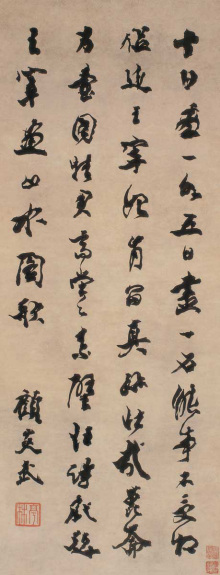 十日畫一水五日畫一石能事不受相
促迫王宰始肯留真跡壯哉崑崙
方壺圖挂君高堂之素壁杜陵戲題
王宰畫山水圖歌 顧炎武